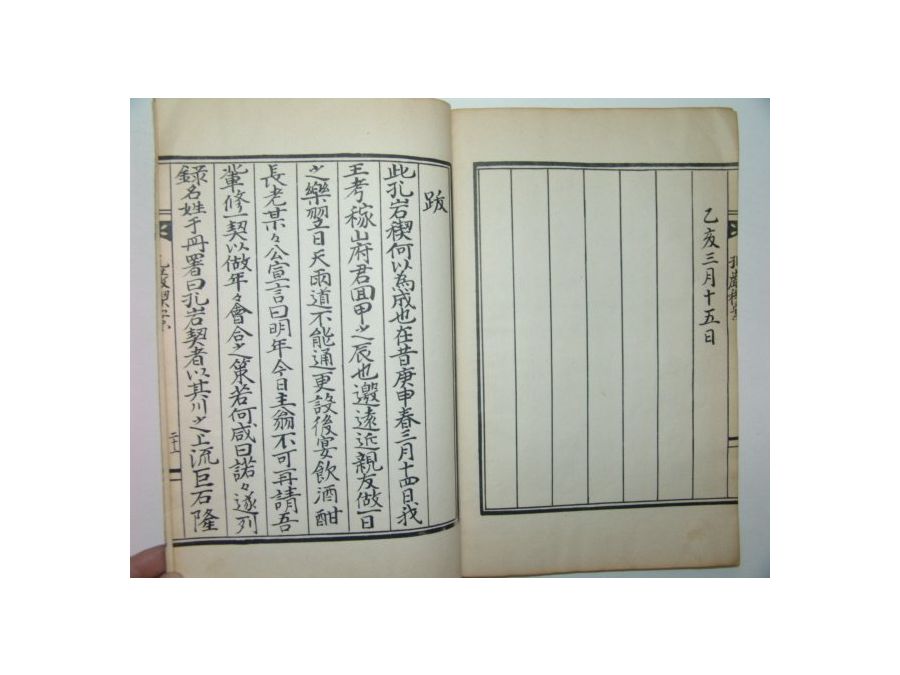 乙亥三月十五日
跋
此孔岩稧何以為成也在昔庚申春三月十四日我
王考稼山府君回甲之辰也邀遠近親友做一日
之樂翌日天雨道不能通更設後宴飮酒酣
長老某々公宣言曰明年今日主翁不可再請吾
輩修一契以做年々會合之策若何咸曰諾々遂列
錄名姓于冊署曰孔岩契者以其川之上流巨石隆